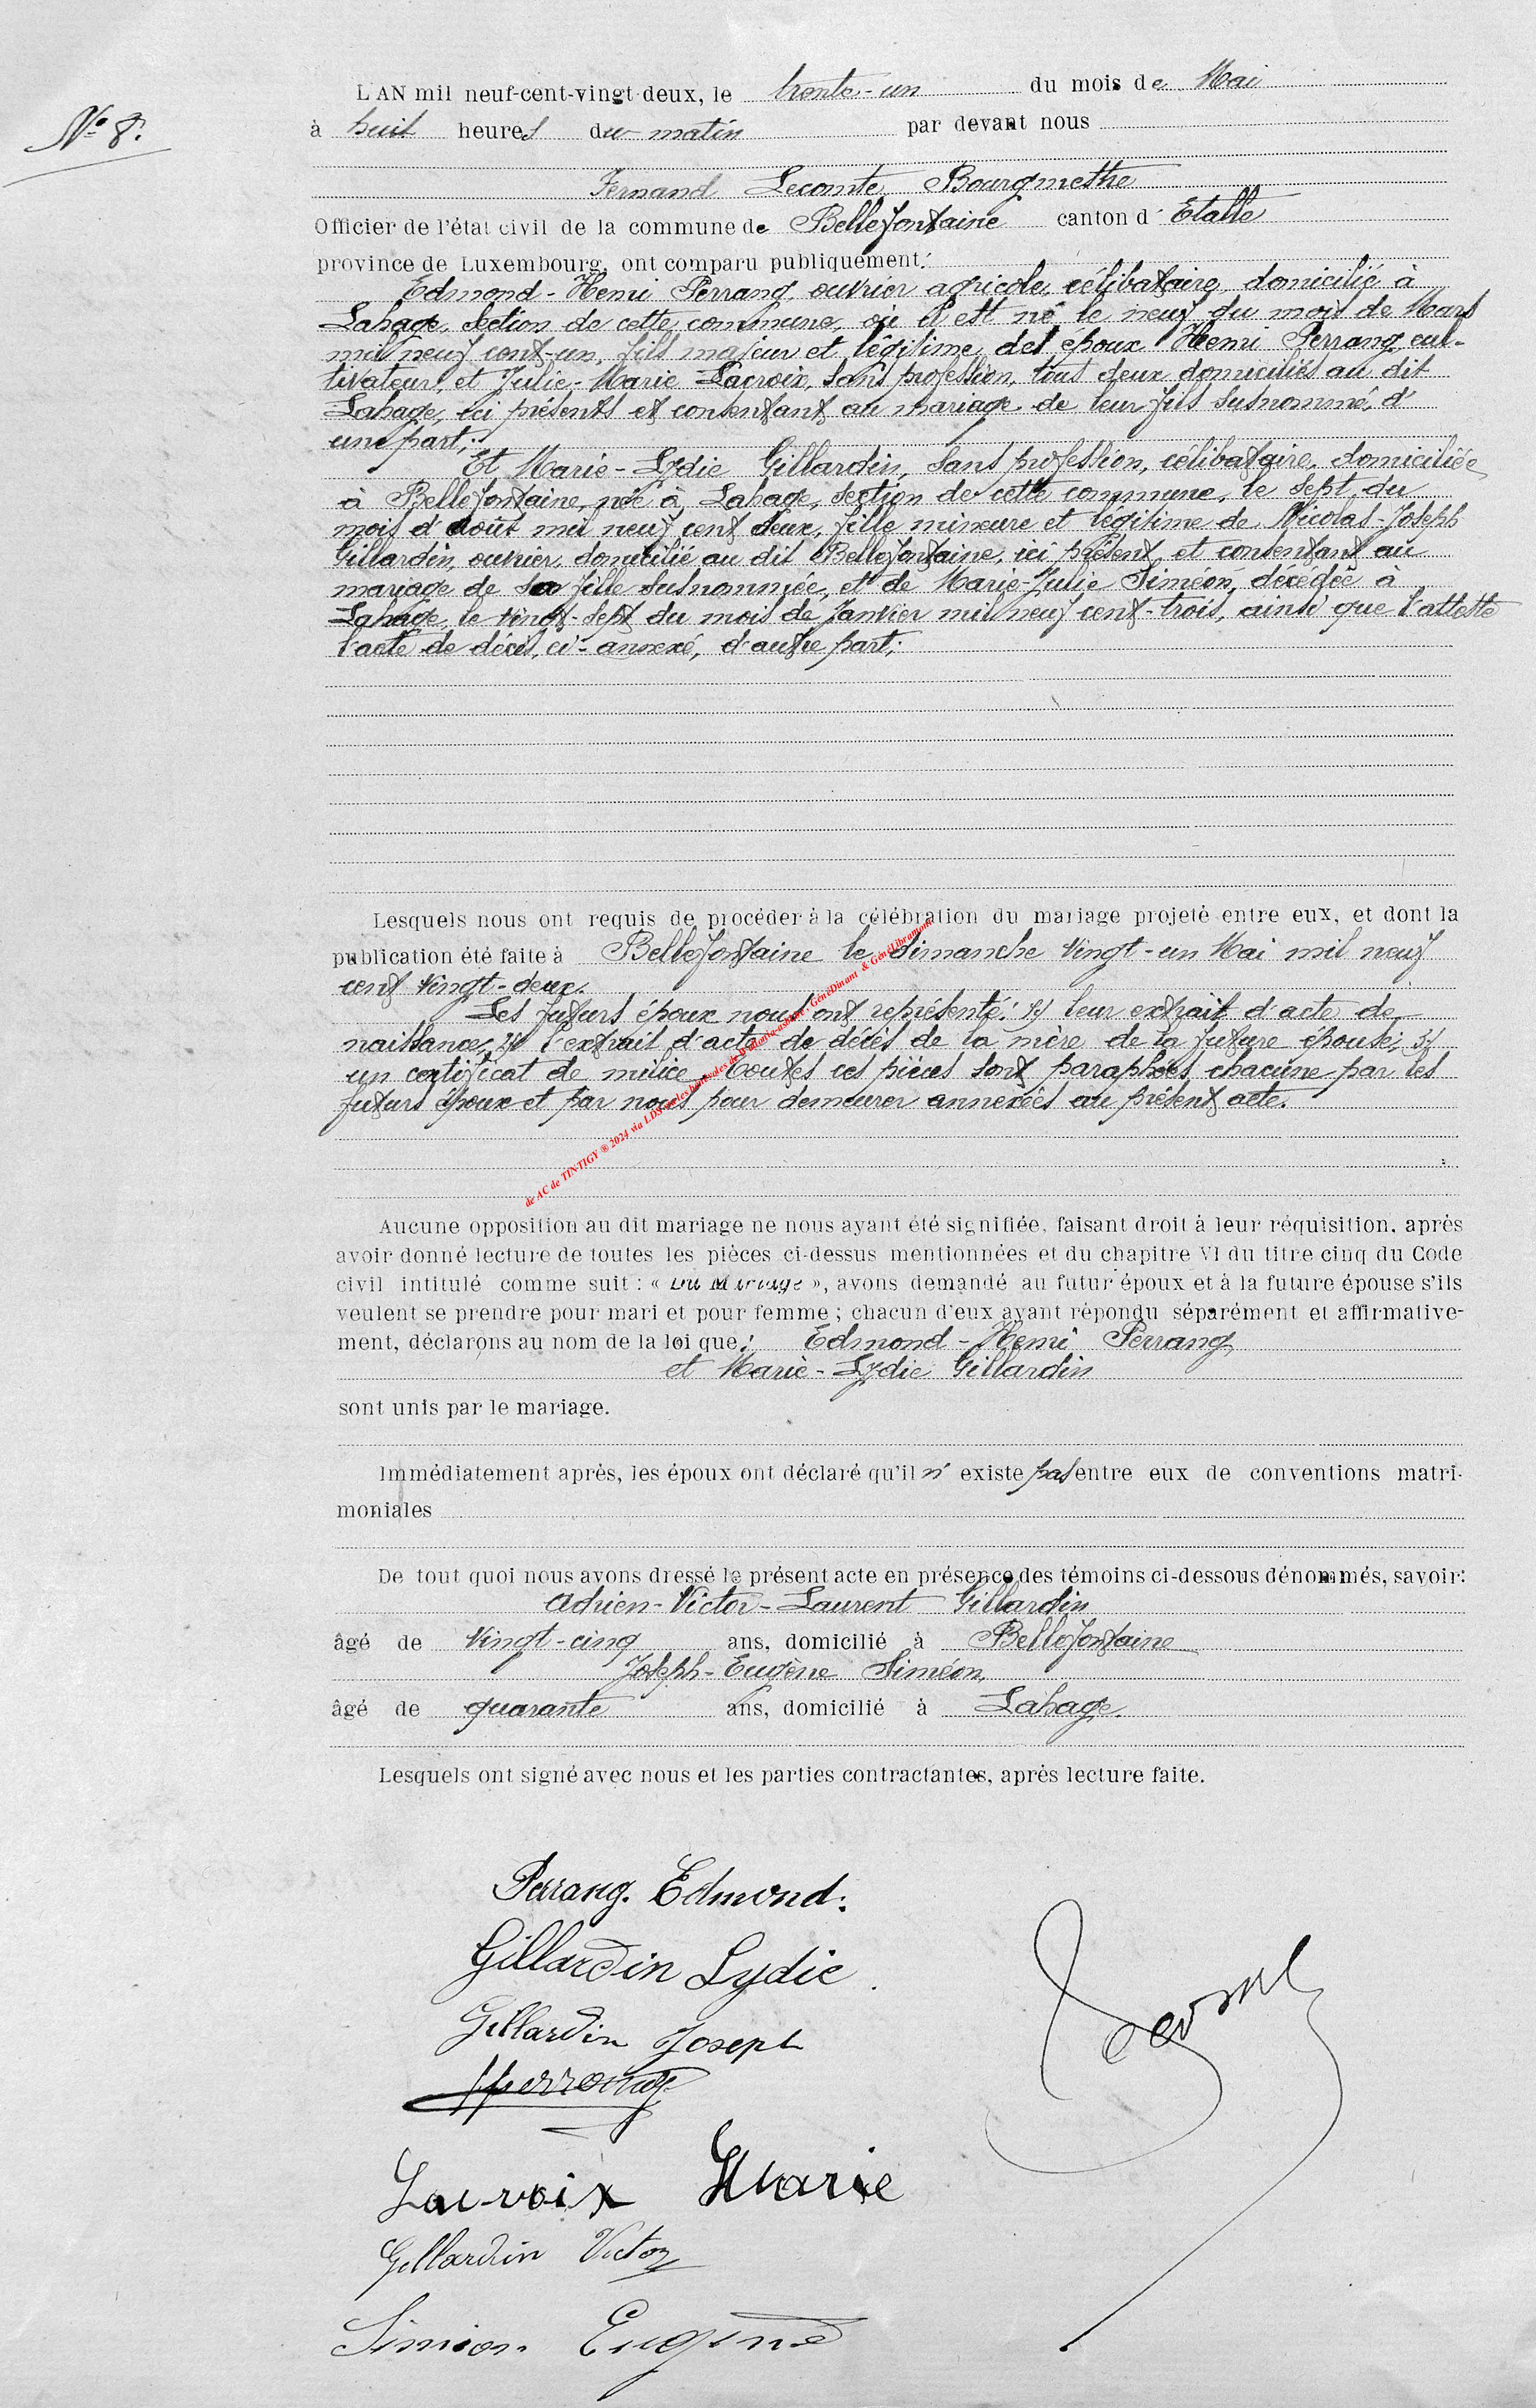 N° 8.
L'AN mil neuf-cent-vingt-deux, le trente-un du mois de Mai
à huit heures du matin par devant nous
Fernand Lecomte, Bourgmestre
Officier de l'état civil de la commune de Bellefontaine canton d' Etalle
province de Luxembourg, ont comparu publiquement:
Edmond-Henri Perrang, ouvrier agricole, célibataire, domicilié à
Lahage, section de cette commune, où il est né le neuf du mois de Mars
mil neuf cent-un, fils majeur et légitime des époux Henri Perrang, cul-
tivateur, et Julie-Marie Lacroix, sans profession, tous deux domiciliés au dit
Lahage, ici présents et consentant au mariage de leur fils susnommé, d'
une part;
Et Marie-Lydie Gillardin, sans profession, célibataire, domiciliée
à Bellefontaine, née à Lahage, section de cette commune, le sept du
mois d'août mil neuf cent deux, fille mineure et légitime de Nicolas-Joseph
Gillardin, ouvrier, domicilié au dit Bellefontaine, ici présent et consentant au
mariage de sa fille susnommée, et de Marie-Julie Siméon, décédée à
Lahage, le vingt-sept du mois de Janvier mil neuf cent-trois, ainsi que l'atteste
l'acte de décès, ci-annexé, d'autre part;
Lesquels nous ont requis de procéder à la célébration du mariage projeté entre eux, et dont la
publication été faite à Bellefontaine le dimanche vingt-un Mai mil neuf
cent vingt-deux.
Les futurs époux nous ont représenté: 1) leur extrait d'acte de
naissance; 2) l'extrait d'acte de décès de la mère de la future épouse; 3)
un certificat de milice. Toutes ces pièces sont paraphées chacune par les
futurs époux et par nous pour demeurer annexées au présent acte.
de AC de TINTIGY ® 2024 via LDS et les bénévoles de GénéDinant & GénéLibramont
Aucune opposition au dit mariage ne nous ayant été signifiée, faisant droit à leur réquisition, après
avoir donné lecture de toutes les pièces ci-dessus mentionnées et du chapitre VI du titre cinq du Code
civil intitulé comme suit : « Du Mariage », avons demandé au futur époux et à la future épouse s'ils
veulent se prendre pour mari et pour femme ; chacun d'eux ayant répondu séparément et affirmative-
ment, déclarons au nom de la loi que: Edmond-Henri Perrang
et Marie-Lydie Gillardin
sont unis par le mariage.
Immédiatement après, les époux ont déclaré qu'il n' existe pas entre eux de conventions matri-
moniales
De tout quoi nous avons dressé le présent acte en présence des témoins ci-dessous dénommés, savoir:
Adrien-Victor-Laurent Gillardin
âgé de vingt-cinq ans, domicilié à Bellefontaine
Joseph-Eugène Siméon,
âgé de quarante ans, domicilié à Lahage.
Lesquels ont signé avec nous et les parties contractantes, après lecture faite.
Perrang. Edmond.
Gillardin Lydie
Gillardin Joseph
H perrang
Lacroix Marie
Gillardin Victor
Simion Eugène